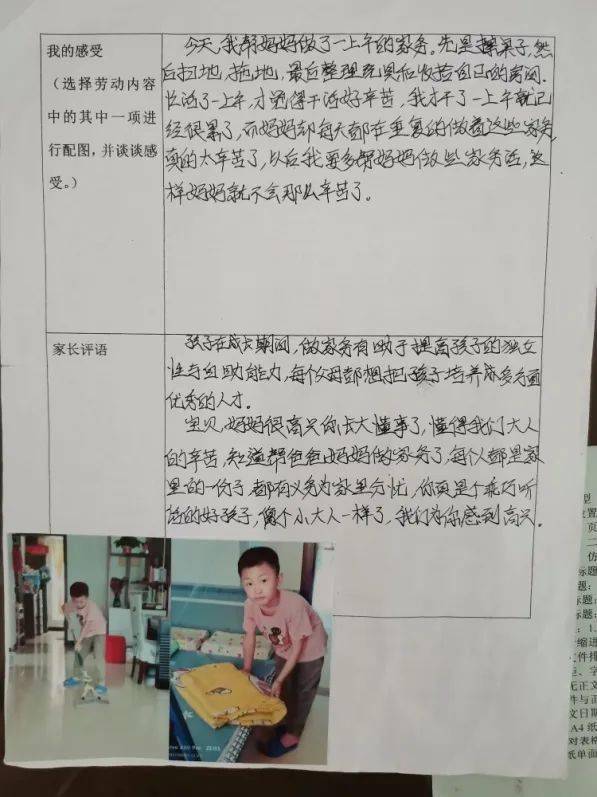 我的感受
（选择劳动内容
中的其中一项进
行配图，并谈谈感
受。）
今天，我帮妈妈做了一上午的家务。先是擦桌子，然
后扫地，拖地，最后整理玩具和收拾自己的房间。
忙活了一上午，才觉得干活好辛苦，我才干了一上午就已
经很累了，而妈妈却每天都在重复的做着这些家务，
真的太辛苦了，以后我要多帮妈妈做些家务活，这
样妈妈就不会那么辛苦了。
家长评语
孩子在成长期间，做家务有助于提高孩子的独立
性与自助能力，每个父母都想把孩子培养成多方面
优秀的人才。
宝贝，妈妈很高兴你长大懂事了，懂得我们大人
的辛苦，知道帮爸爸妈妈做家务了，每个人都是家
里的一份子，都有义务为家里分忧，你真是个乖巧听
话的好孩子，像个小大人一样了，我们为你感到高兴。
型
设置
页
二
仿
标题
题：
标题：
标题：
：1.
缩进
文件排
距、字
无正文
件与正
文日期
A4 纸
对表格
纸单面